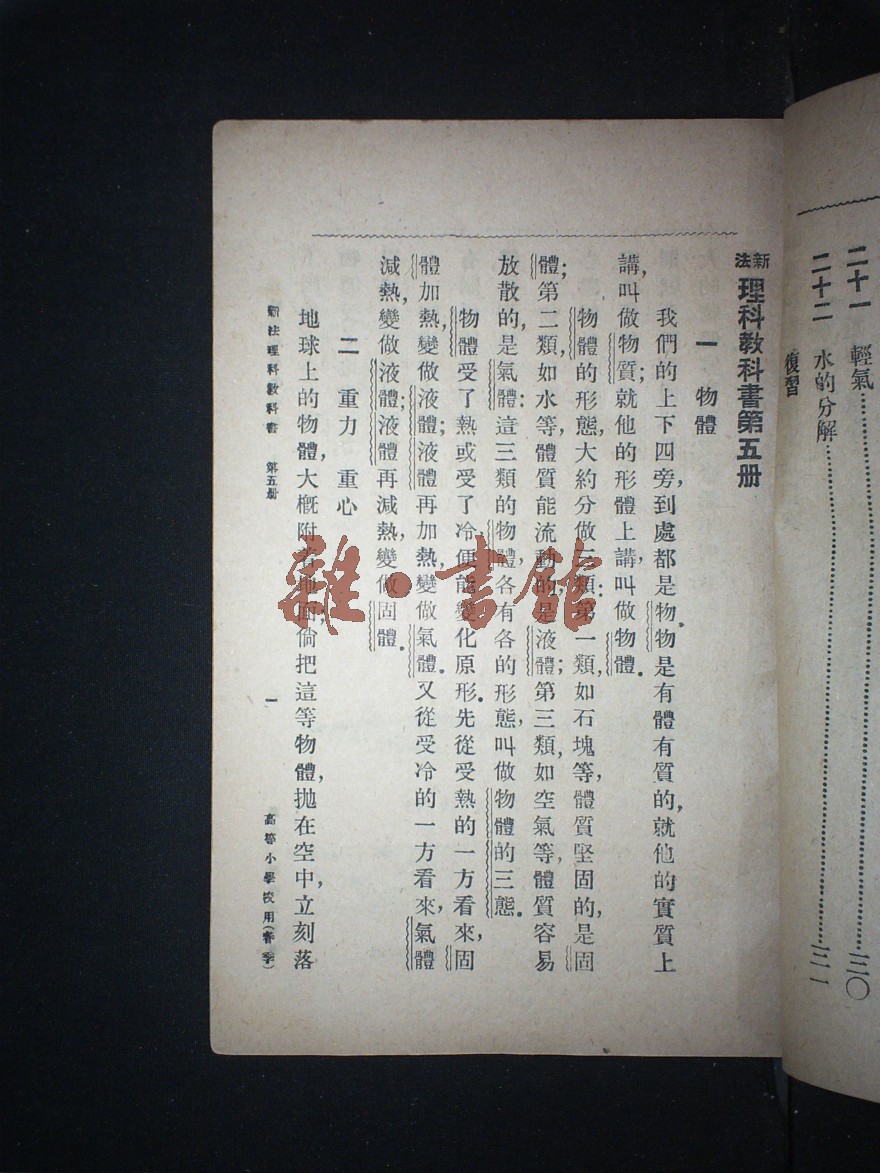 二十一 輕氣 三〇
二十二 水的分解 三一
復習
新法理科教科書第五册
一 物體
我們的上下四旁，到處都是物。物是有體有質的，就他的實質上
講，叫做物質；就他的形體上講，叫做物體。
物體的形態，大約分做三類：第一類，如石塊等，體質堅固的，是固
體；第二類，如水等，體質能流動的，是液體；第三類，如空氣等，體質容易
放散的，是氣體：這三類的物體，各有各的形態，叫做物體的三態。
物體受了熱或受了冷，便能變化原形。先從受熱的一方看來，固
體加熱，變做液體；液體再加熱，變做氣體。又從受冷的一方看來，氣體
減熱，變做液體；液體再減熱，變做固體。
二 重力 重心
地球上的物體，大概附着地面，倘把這等物體，拋在空中，立刻落
新法理科教科書 第五册 一 高等小學校用(春季)
雜·書館